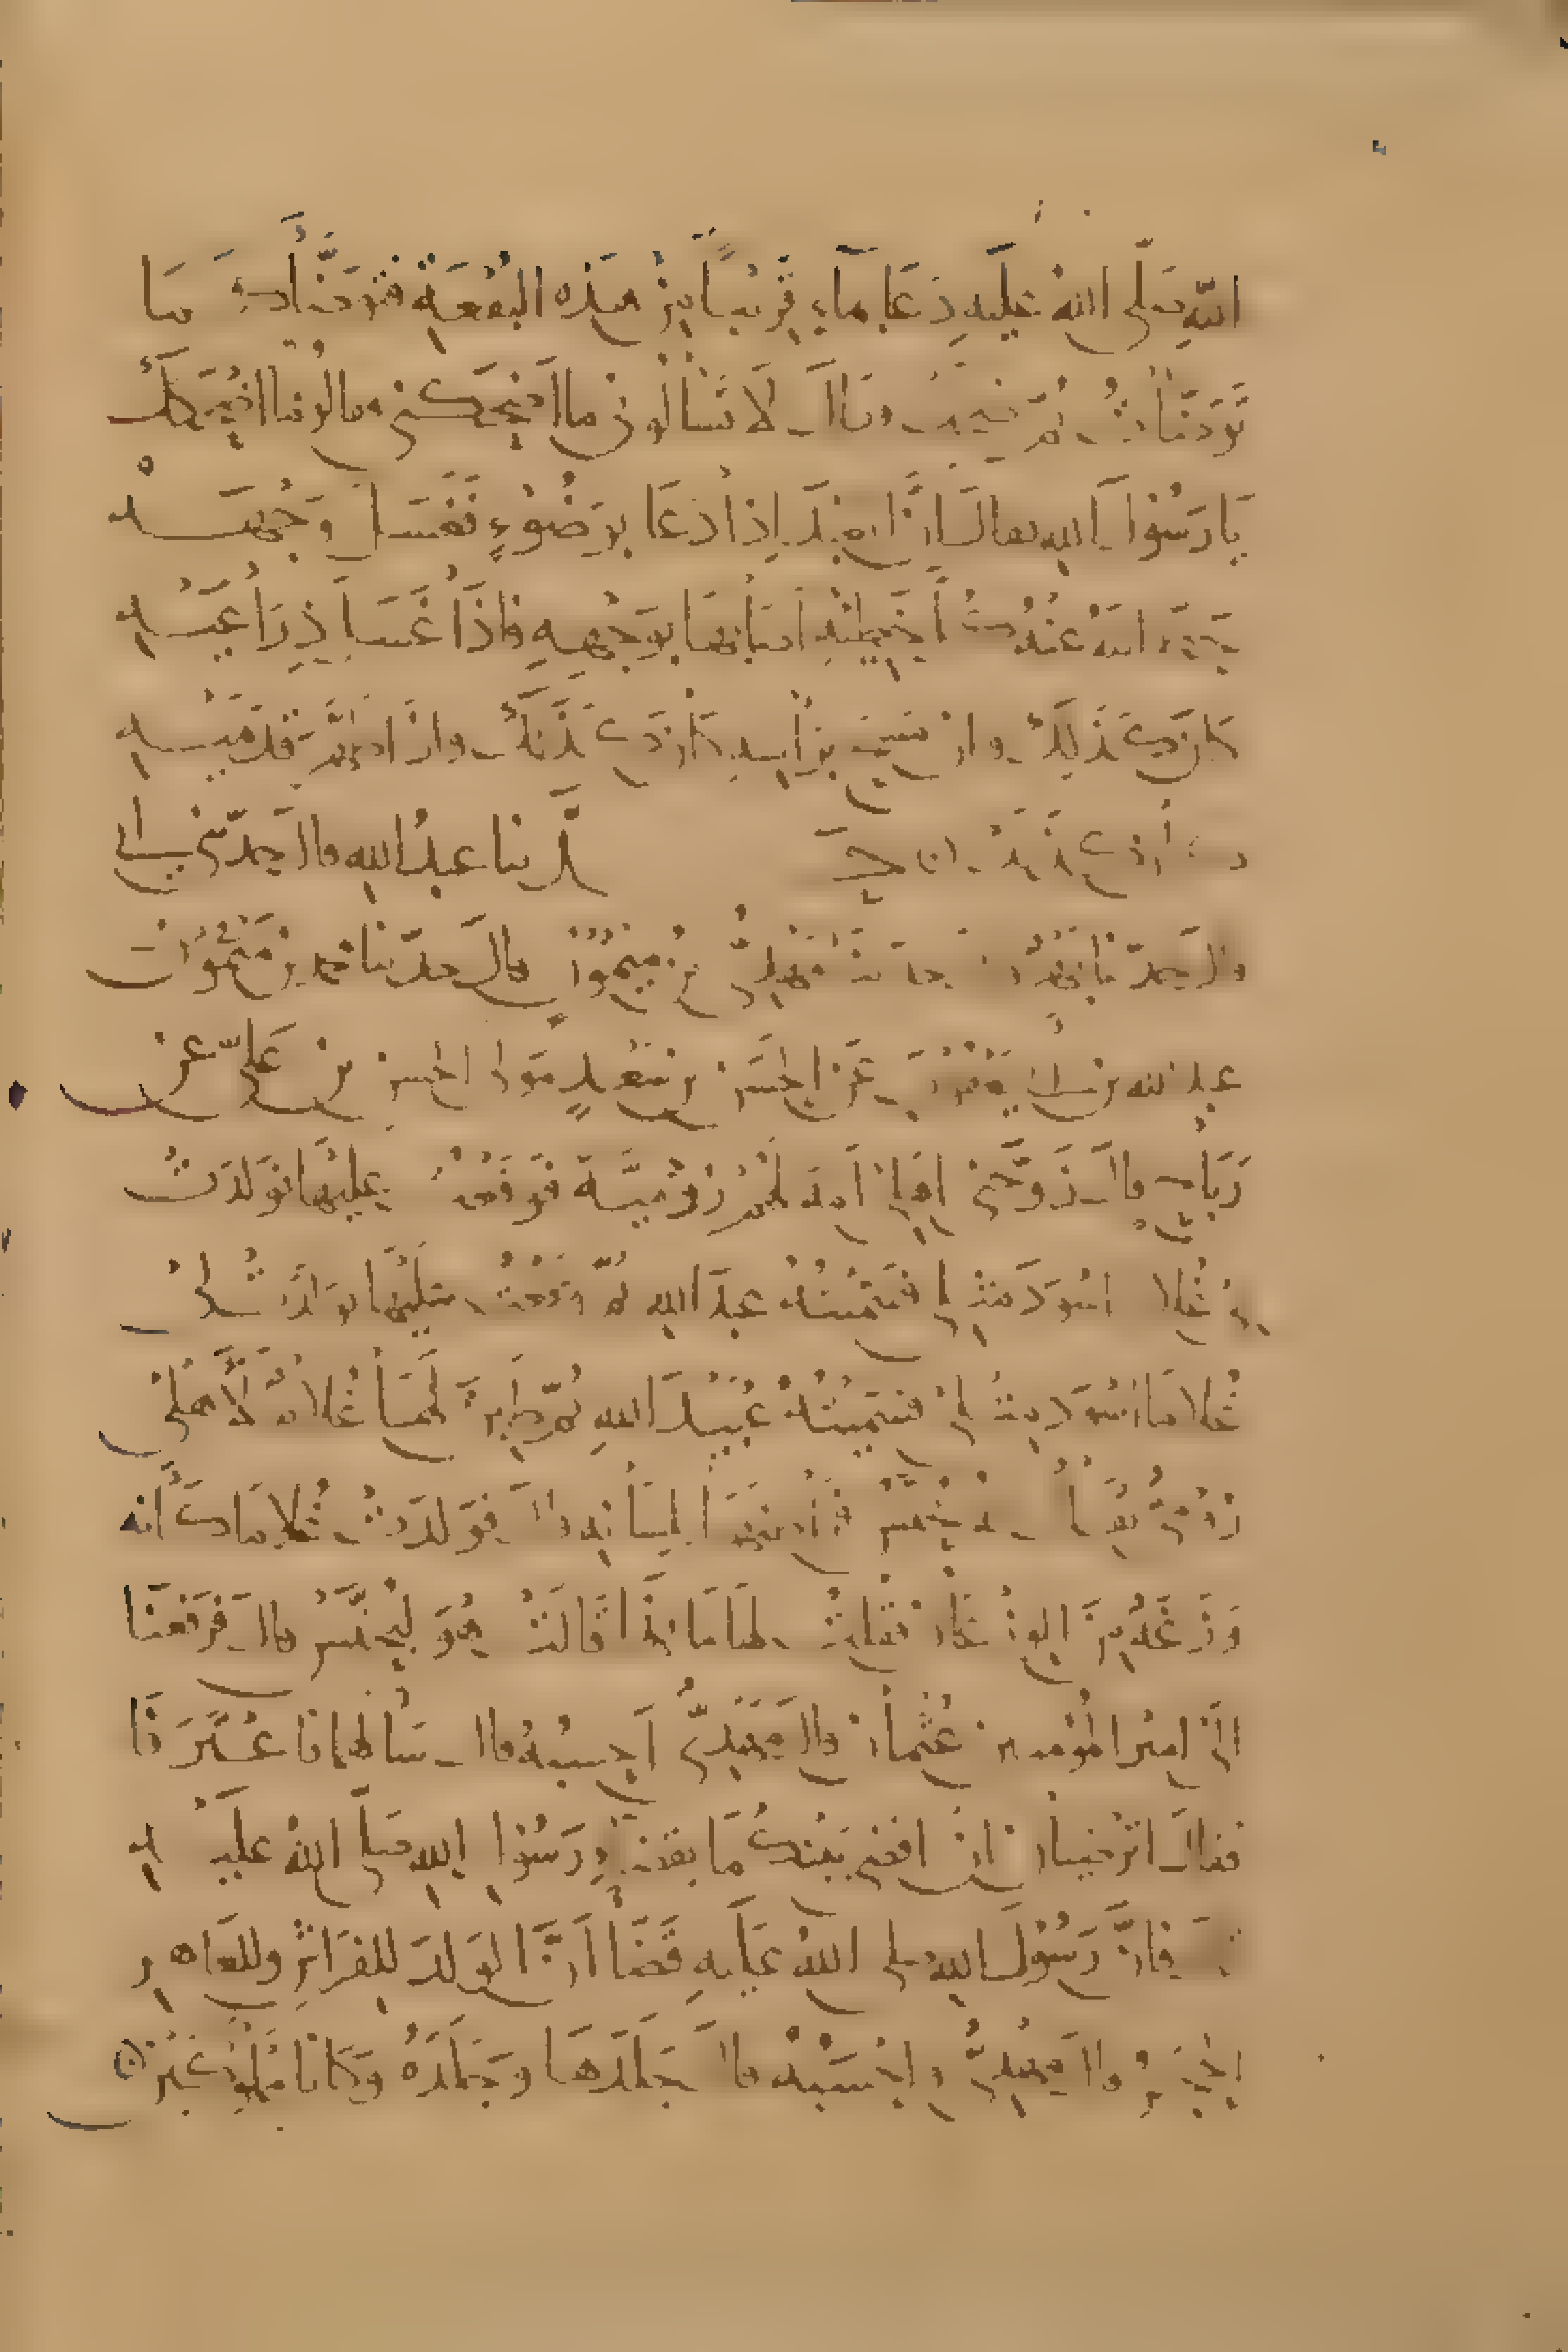 الله صلى الله عليه دعا بماء قريبا من هذه البقعة فتوضأ كما
توضأت ثم ضحك فقال ألا تسألوني ما أضحكني فقالوا ما أضحكك
يا رسول الله فقال إن العبد إذا دعا بوضوء فغسل وجهه
حط الله عنه كل خطيئة أصابها بوجهه فإذا غسل ذراعيه
كان كذلك وإن مسح برأسه كان كذلك وإذا طهر قدميه
كان كذلك حدثنا عبد الله قال حدثني أبي
قال حدثنا مهدي بن ميمون قال حدثنا محمد بن
عبد الله بن أبي يعقوب عن الحسن بن سعد مولى الحسن بن علي عن
رباح قال زوجني أهلي أمة لهم رومية فوقعت عليها فولدت
لي غلاما أسود مثلي فسميته عبد الله ثم وقعت عليها فولدت لي
غلاما أسود مثلي فسميته عبيد الله ثم طبن لها غلام لأهلي
رومي يقال له يحنس فراطنها بلسانه قال فولدت غلاما كأنه
وزغة من الوزغان فقلت لها ما هذا قالت هو ليحنس قال فرفعنا
إلى أمير المؤمنين عثمان قال مهدي أحسبه قال سألهما فاعترفا
فقال أترضيان أن أقضي بينكما بقضاء رسول الله صلى الله عليه
فإن رسول الله صلى الله عليه قضا أن الولد للفراش وللعاهر
الحجر قال مهدي وأحسبه قال جلدها وجلده وكانا مملوكين